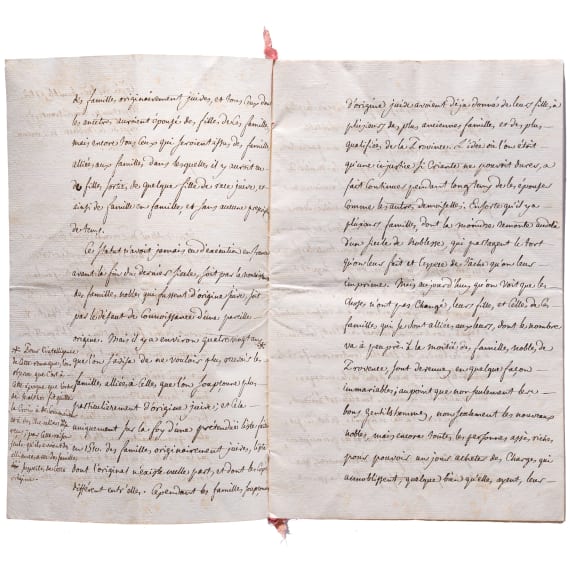 des familles originairement juives, et tous ceux dont
les ancetres auroient épousé des filles de ces familles
mais encore tous ceux qui seroient issus de familles
alliées aux familles dans lesquelles il y auroit eu
de filles sorties de quelque fille de race juive, et
ainsi de famille en familles et sans aucune prescription
de tems.
Ces statut n'avoit jamais eu d'exécution en france
avant la fin du dernier siecle, soit par le nombre
des familles nobles qui fussent d'origine juive, soit
par le défaut de connoissance d'une pareille
origine. Mais il y a environ quatre vingt ans
que l'on s'avisa de ne vouloir plus recevoir les
familles alliées à celles que l'on soupçonne plus
particulierement d'origine juive; et cela
uniquement sur la foy d'une prétendüe liste faite
en 1510. des familles originairement juives, liste
dont l'original n'existe nulle part, et dont les copies
different entr'elles. Cependant les familles soupçonnées
* Pour l'intelligence
de cette remarque, il faut
observer que
à cette époque
d'origine juive avoient déja donné de leurs filles à
plusieurs des plus anciennes familles et des plus
qualifiées de la Province. L'idée où l'on étoit
qu'une injustice si criante ne pouvoit durer, a
fait continuer pendant longtems de les épouser
comme les autres demoiselles. Ensorte qu'il y a
plusieurs familles, dont la moindre remonte audelà
d'un siecle de noblesse, qui partagent le tort
qu'on leur fait et l'espece de tache qu'on leur
imprime. Mais aujourd'huy, qu'on voit que les
choses n'ont pas changé, leurs filles et celles de ces
familles qui se sont alliées aux leurs, dont le nombre
va à peu près à la moitié des familles nobles de
Provence, sont devenues en quelque façon
immariables; au point que non seulement les
bons gentilshommes, non seulement les nouveaux
nobles, mais encore toutes les personnes assés riches
pour pouvoir un jour acheter des charges qui
annoblissent, quelque bien qu'elles ayent, leur